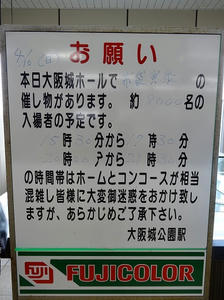 お願い
本日大阪城ホールで の
催し物があります。約 000名の
入場者の予定です。
15時30分から17時30分
時 分 時30分
の時間帯はホームとコンコースが相当
混雑し皆様に大変御迷惑をおかけ致し
ますが、あらかじめご了承下さい。
大阪城公園駅
FUJI
FUJICOLOR